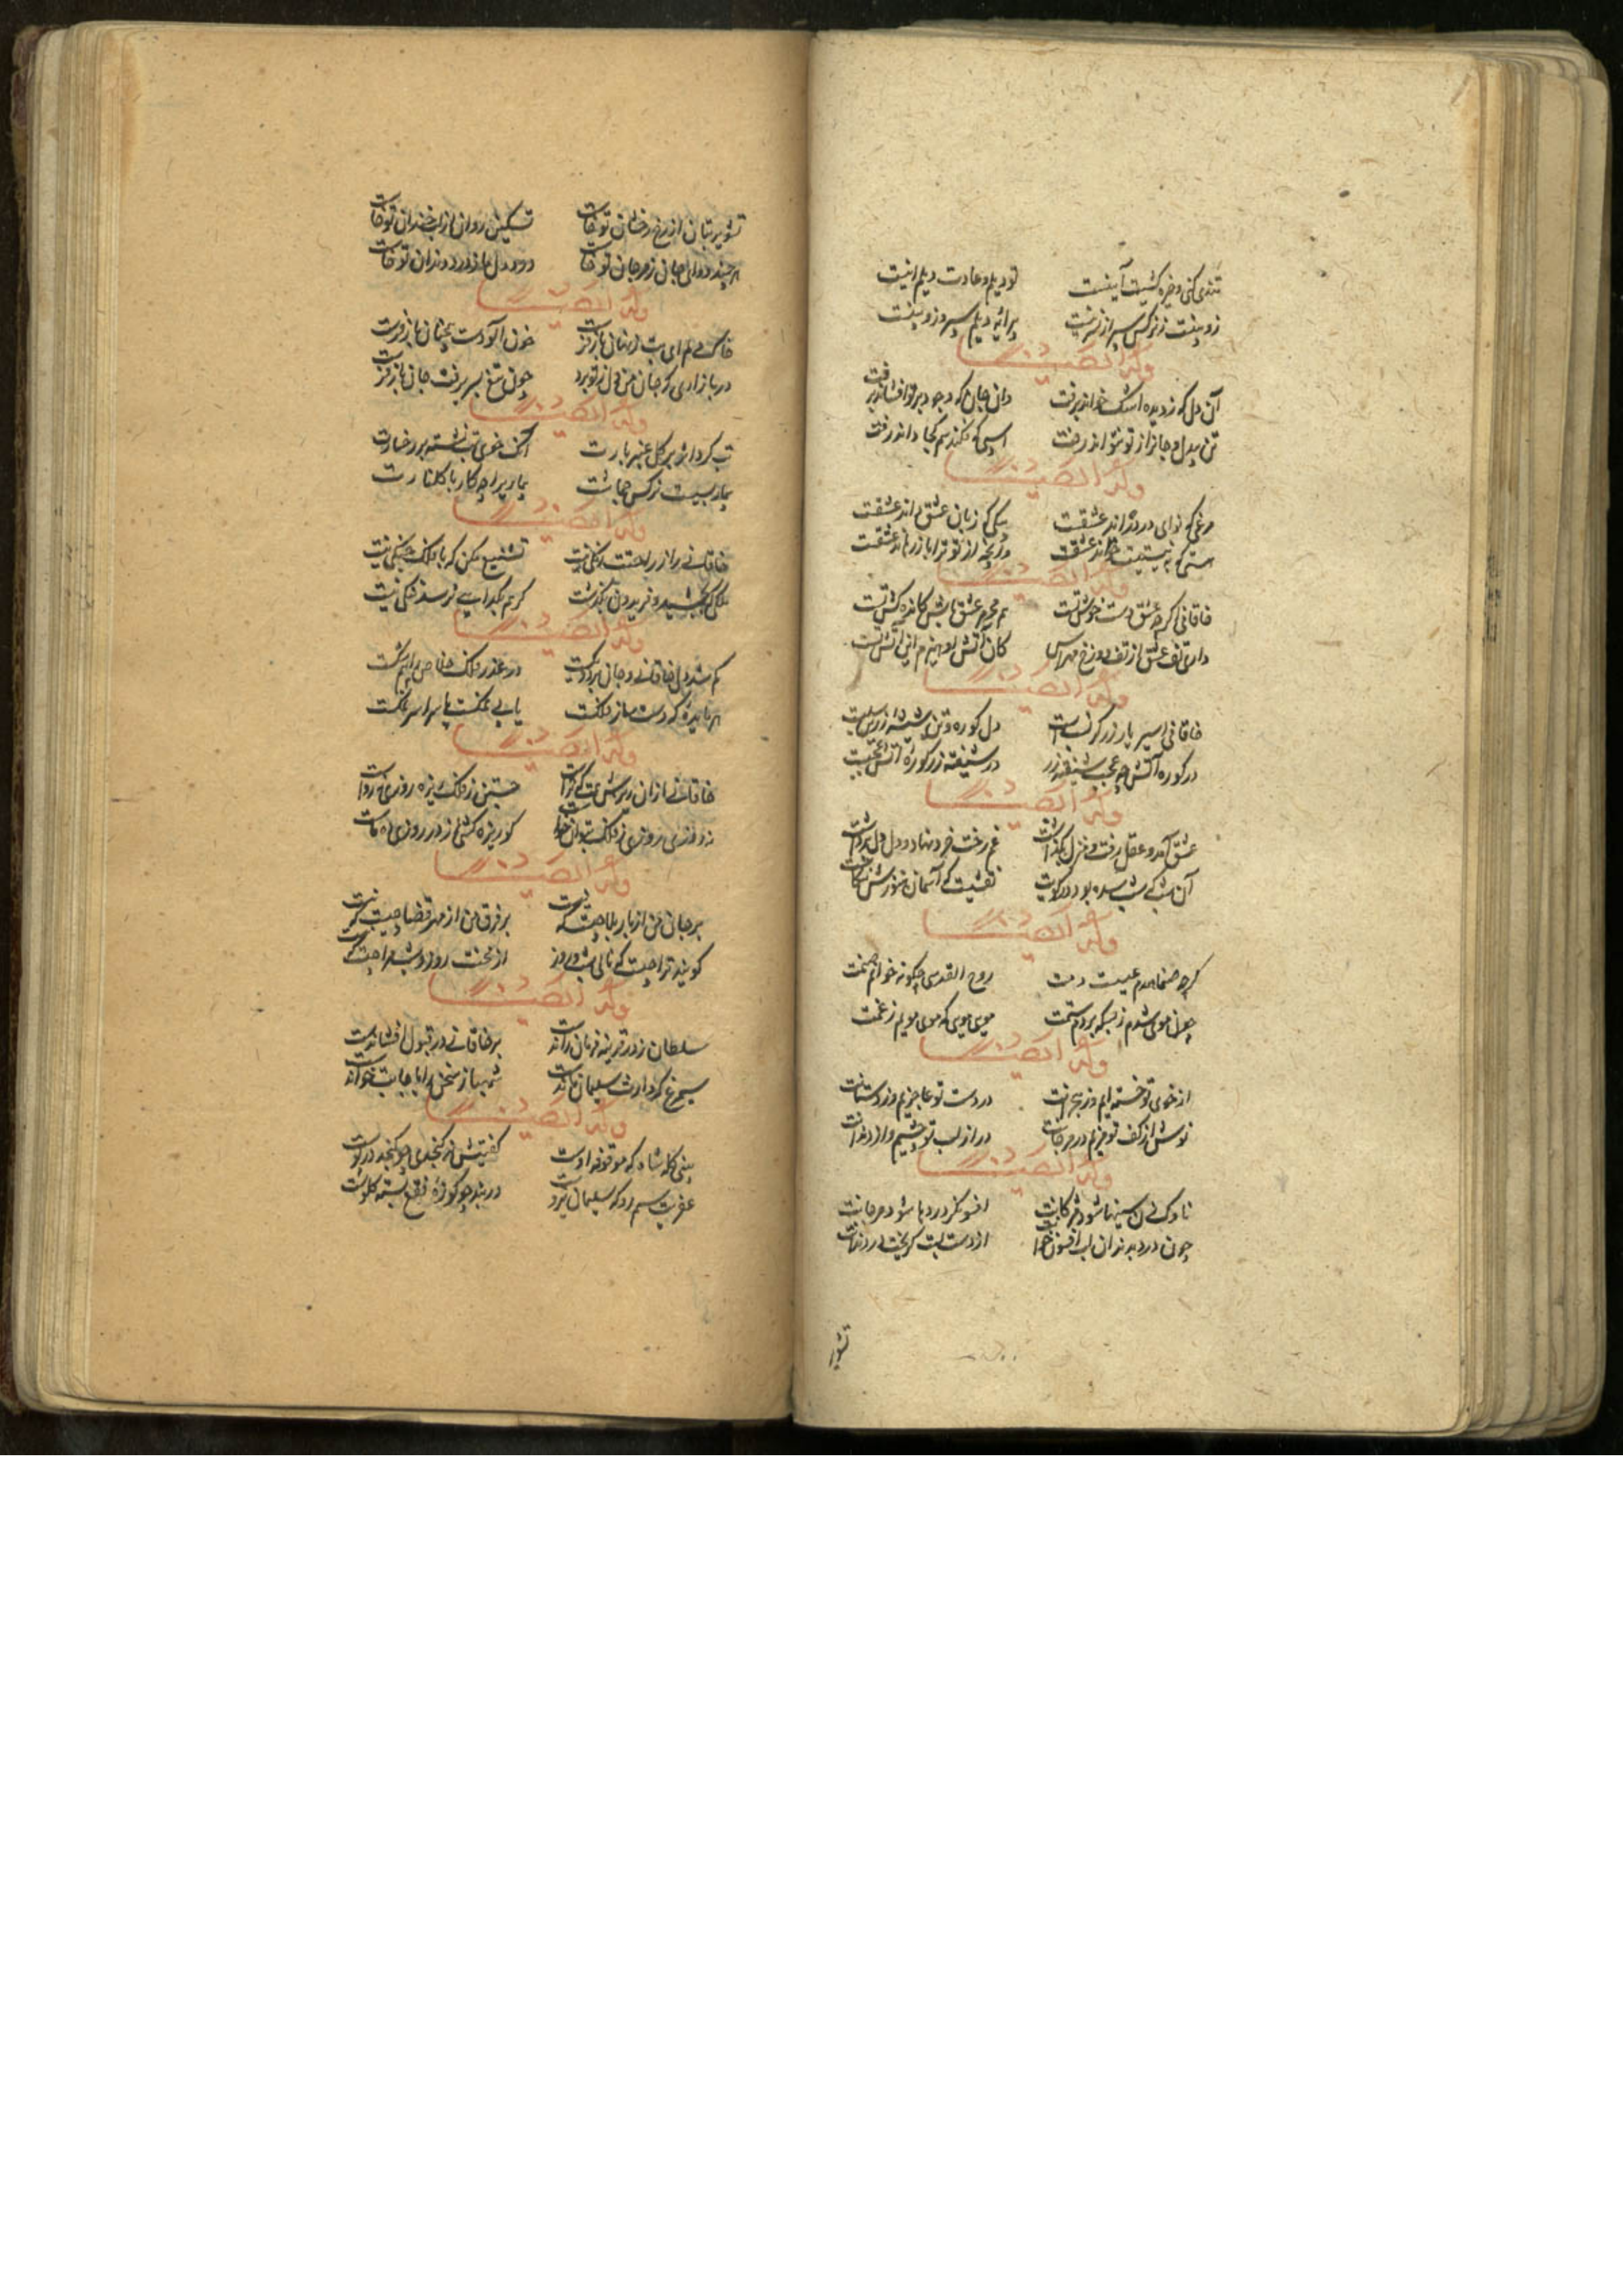 تندی کنی و خیره کشیت آیینست تو دیلم و عادت دیلم اینست
زوبینت ز نرگس سپر از نسرینست پیرایه دیلم سپر و زوبینست
وله ایضا
آن دل که ز دیده اشک خون راند برفت وان جان که وجود بر تو افشاند برفت
تن بیدل و جان از تو نشو اند رفت اسبی که فکند سم کجا داند رفت
وله ایضا
مرغی که نوای درد راند عشقست پیکی که زبان عشق داند عشقست
هستی که به نیستیت خواند عشقست وآنچه از تو ترا باز رهاند عشقست
وله ایضا
خاقانی اگرچه عشق دست خوش تست هم محرم عشق باش کانده کش تست
داری تف عشق از تف دوزخ مهراس کان آتش او هیزم این آتش تست
وله ایضا
خاقانی اسیر یار زرگر نسب است دل کوره و تن شیشه زرین سلب است
در کوره آتش چه عجب شیفته زر در شیفته زر کوره آتش عجبست
وله ایضا
عشق آمد و عقل رفت و منزل بگذاشت غم رخت فرو نهاد و دل دل برداشت
آن شب که به کویت نقشیست که آسمان هنوزش ننگاشت
وله ایضا
گرچه صنما همدم عیسیست دمت روح القدسی چگونه خوانم صنمت
چون موی شدم ز بسکه بردم ستمت مویی مویی که موی مویم ز غمت
وله ایضا
از خوی تو خسته ایم وز هجرانت در دست تو عاجزیم وز دستانت
نوش از کف تو مزیم در مرجانت در از لب تو چشیم و از دندانت
وله ایضا
ناوک زن سینها شود مژگانت افسونگر دردها شود مرجانت
چون درد بدندان لب افسون خوانت از دست لبت گریخت در دندانت
تشویر
تشویر بتان از رخ رخشان تو خاست تسکین روان از لب خندان تو خاست
هر چند دوای جان ز مرجان تو خاست درد دل ما ز درد دندان تو خاست
وله ایضا
خاک دلم ای بت ز نهان باز فرست خون آلودست همچنان باز فرست
در بازاری که جان ز من دل ز تو برد چون بیع بسر نرفت جان باز فرست
وله ایضا
تب کرد اثر بر گل عنبر بارت آنک خوی تب نشسته بر رخسارت
بیماریست نرگس جماشت بیماری را چه کار با گلنارت
وله ایضا
خاقانی را ز طعنت رنگی نیست تشنیع مکن که با فلک جنگی نیست
ملکی که بجمشید و فریدون نگذشت گر هم بگدایی نرسد ننگی نیست
وله ایضا
گم شد دل خاقانی و جان بر دو یکیست در غدر فلک خاص برابر شکیست
هر مایده که دست ساز فلکست یا بی نمکست یا سراسر نمکست
وله ایضا
خاقانی از آن ریزش همت که تراست جستن ز فلک ریزه روزی نه رواست
نه روزی روزی ز فلک بتوان خواست کو ریزه کشی ز روزی ماست
وله ایضا
بر جان من از بار بلا چیست که نیست بر فرق من از مهر قضا چیست که نیست
گویند ترا چیست که نالی شب و روز از محنت روز و شب مرا چیست که نیست
وله ایضا
سلطان ز در قونیه فرمان رانداست بر خاقانی در قبول افشانداست
سیمرغ که وارث سلیمان ماندست شهباز سخن را باجابت خواندست
وله ایضا
بینی کله شاه که مه قوقه اوست گفتیش که گنجدی چو گنجد در پوست
عفریت ستم رو که سلیمان نیرو در بند چو کوزه فقع بسته گلوست